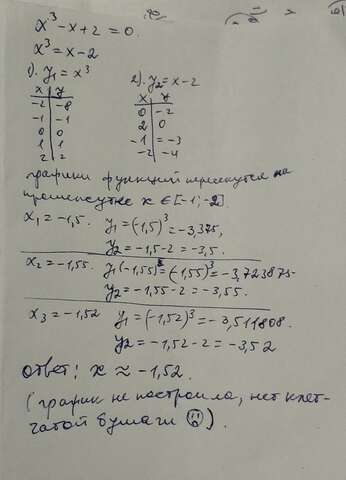 x³ - x + 2 = 0.
x³ = x - 2
1). y₁ = x³
x | y
-2 | -8
-1 | -1
0 | 0
1 | 1
2 | 2
2). y₂ = x - 2
x | y
0 | -2
2 | 0
-1 | = -3
-2 | -4
графики функций пересекутся на
промежутке x ∈ [-1; -2].
x₁ = -1,5. y₁ = (-1,5)³ = -3,375,
y₂ = -1,5 - 2 = -3,5.
x₂ = -1,55. y₁(-1,55)³ = (-1,55)³ = -3,723875
y₂ = -1,55 - 2 = -3,55.
x₃ = -1,52 y₁ = (-1,52)³ = -3,511808.
y₂ = -1,52 - 2 = -3,52
ответ: x ≈ -1,52.
(график не построила, нет клет-
чатой бумаги ☹).